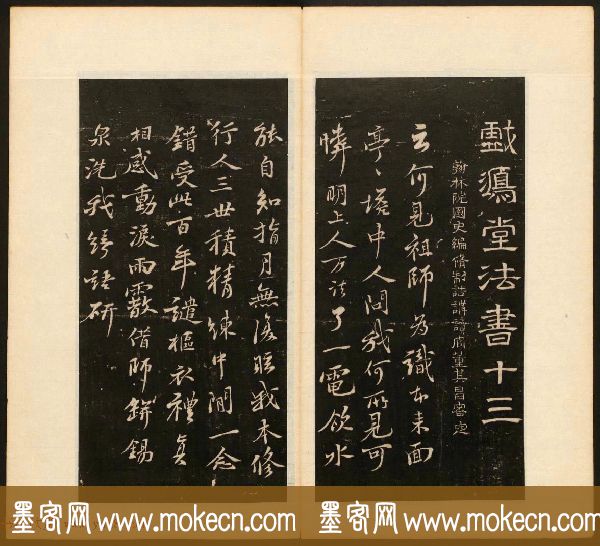 戲鴻堂法書十三
翰林院國史編修制誥講讀官董其昌審定
云何見祖師為識本来面
亭亭塔中人問我何所見可
憐明上人万法了一電飲水
能自知指月無復眩我本修
行人三世積精練中間一念
錯受此百年譴摳衣禮真
相感動淚雨霰借師錫
泉洗我綺語硯
墨客网www.mokecn.com 墨客网www.mokecn.com